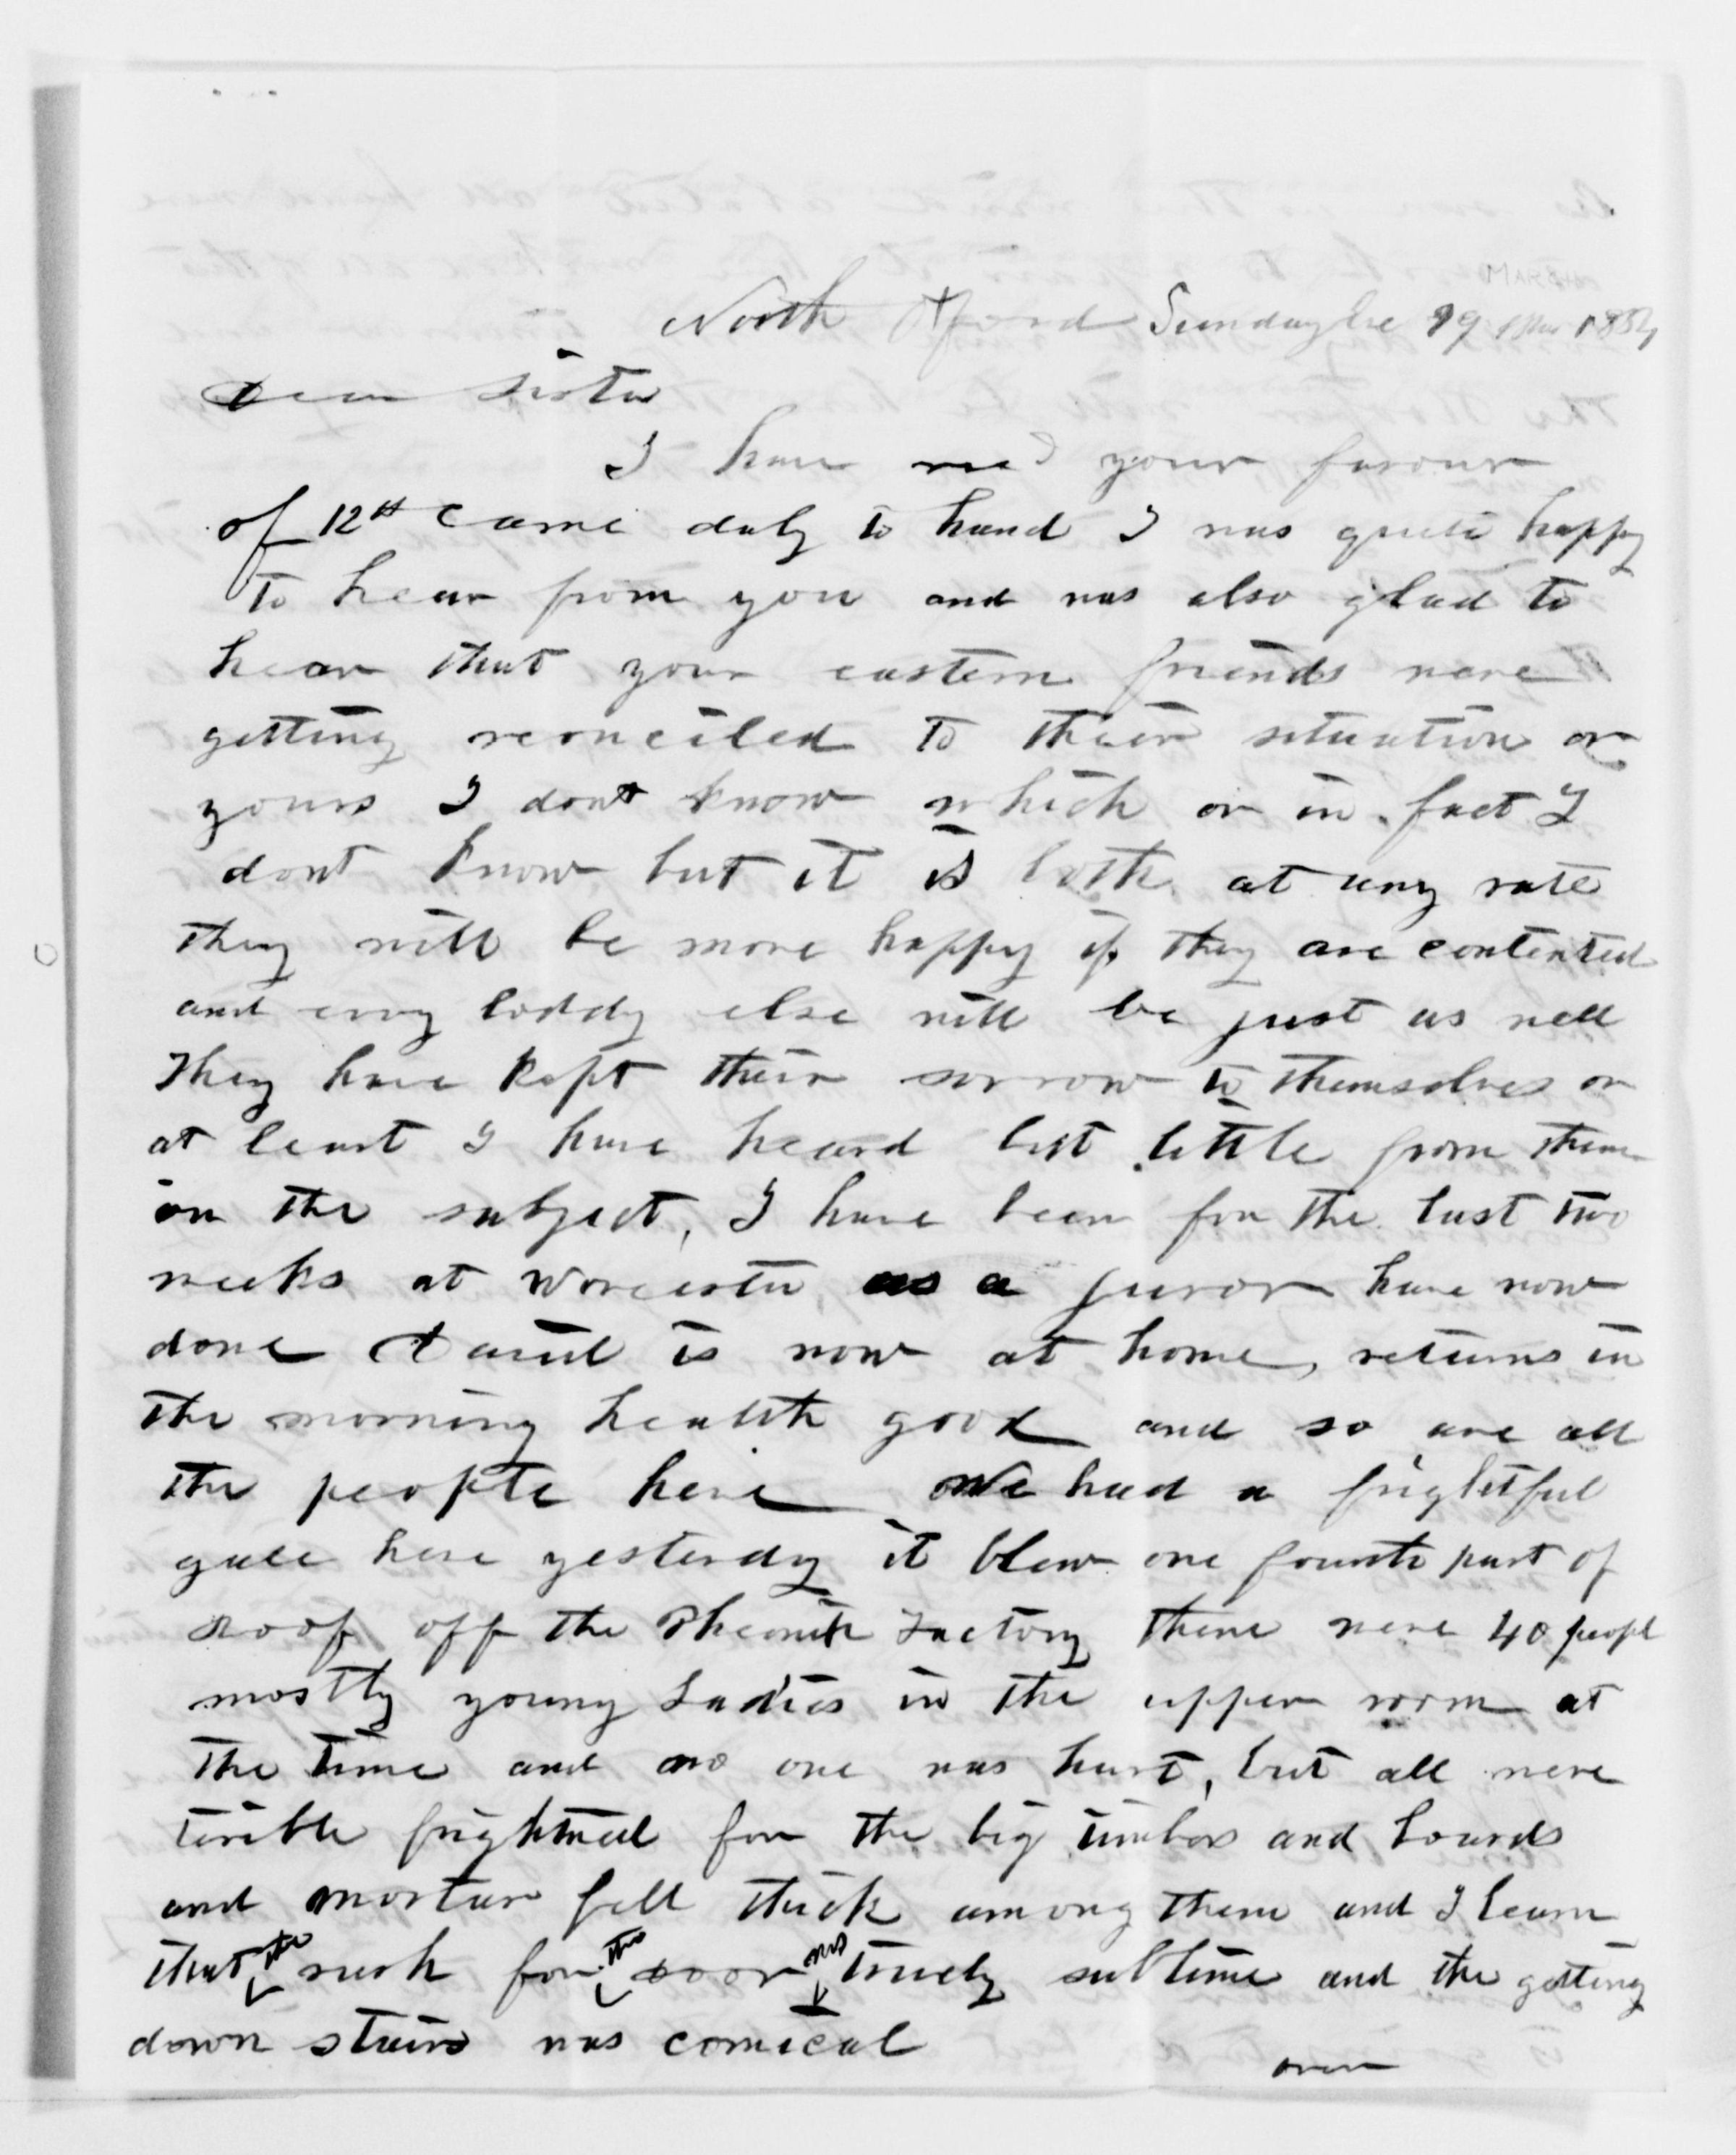 North Oxford Sunday Eve 19 Mar 1854
Dear Sister
I have recd your favour
of 12th came duly to hand I was quite happy
to hear from you and was also glad to
hear that your eastern friends were
getting reconciled to their situation or
yours I dont know which or in fact I
dont know but it is both at any rate
they will be more happy if they are contented
and evry boddy else will be just as well
They have kept their sorrow to themselves or
at least I have heard but little from them
on the subject, I have been for the last two
weeks at Worcester as a juror have now
done David is now at home, returns in
the morning health good and so are all
the people here We had a frightful
gale here yesterday it blew one fourth part of
roof off the Pheonix Factory there were 40 peopl
mostly young Ladies in the upper room at
the time and no one was hurt, but all were
terible frightned for the big timbers and boards
and mortar fell thick among them and I learn
that the rush for the door was truely sublime and the getting
down stairs was comical
over